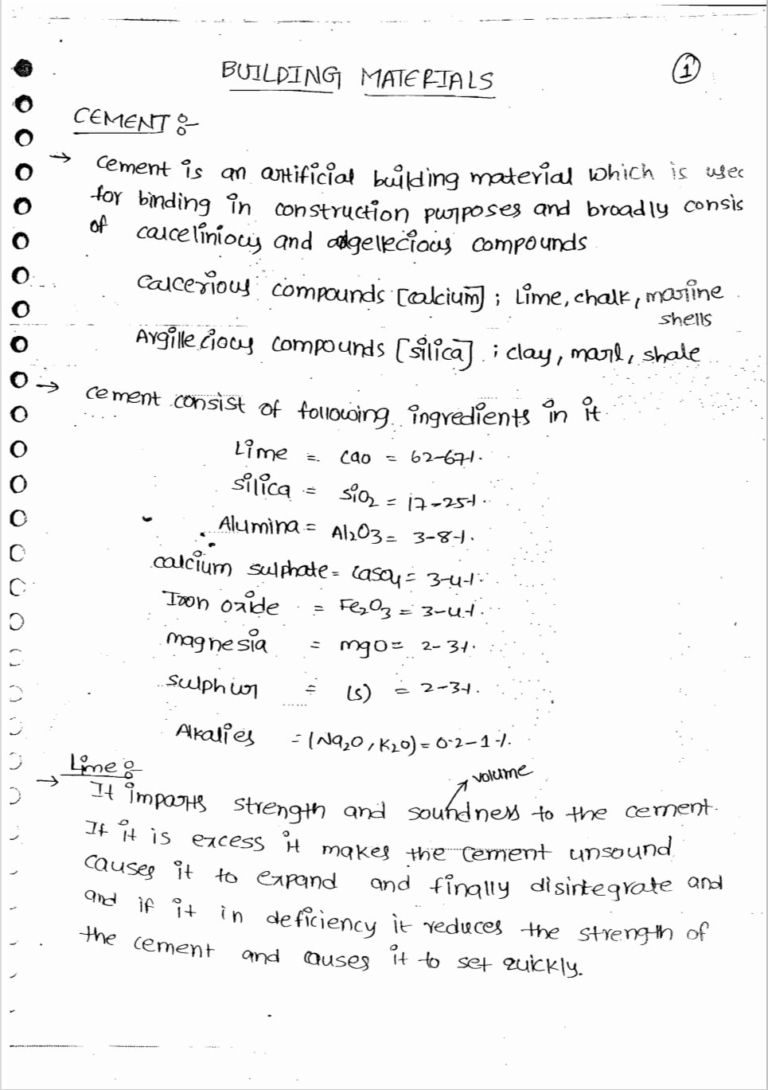 BUILDING MATERIALS
1
CEMENT :-
→ cement is an artificial building material which is used
for binding in construction purposes and broadly consis
of calcelinious and adgellecious compounds
calcerious compounds [calcium] ; Lime, chalk, marine
shells
Argillecious compounds [silica] ; clay, marl, shale
→ cement consist of following ingredients in it
Lime = CaO = 62-67%.
silica = SiO2 = 17-25%.
Alumina = Al2O3 = 3-8%.
calcium sulphate = CaSO4 = 3-4%.
Iron oxide = Fe2O3 = 3-4%.
magnesia = mgO = 2-3%.
sulphur = (s) = 2-3%.
Alkalies = (Na2O, K2O) = 0.2-1%.
Lime :-
volume
→ It imparts strength and soundness to the cement.
If it is excess it makes the cement unsound
causes it to expand and finally disintegrate and
and if it in deficiency it reduces the strength of
the cement and causes it to set quickly.